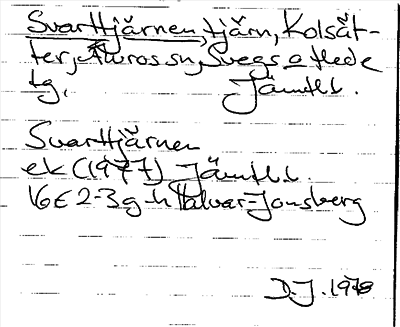 Svarttjärnen, tjärn, Kolsät-
ter, Älvros sn, Svegs o Hede
tg, Jämtl. l.
Svarttjärnen
ek (1977) Jämtl. l.
16E 2-3g-h Halvar-Jonsberg
D.J. 1978